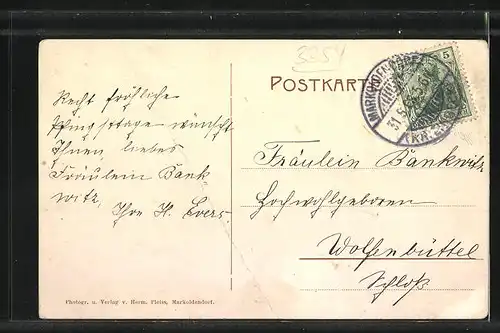 3254
POSTKARTE
5
MARKOLDENDORF
31.5.
(KR.
Recht fröhliche
Pfingsttage wünscht
Ihnen, liebes
Fräulein Bank
witz,
Ihre H. Evers
Fräulein Bankwitz
Hochwohlgeboren
Wolfenbüttel
Schloß
Photogr. u. Verlag v. Herm. Fleiss, Markoldendorf.